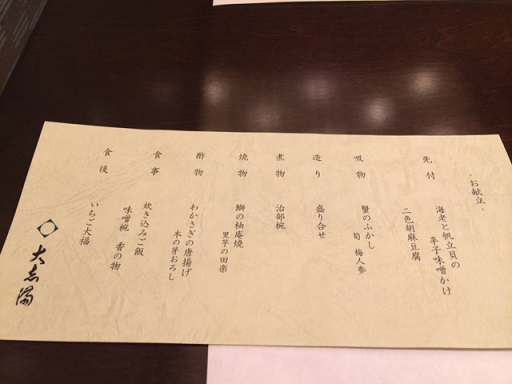 -お献立-
先付
海老と帆立貝の
辛子味噌かけ
二色胡麻豆腐
吸物
蟹のふかし
筍 梅人参
造り
盛り合せ
煮物
治部椀
焼物
鰤の柚庵焼
里芋の田楽
酢物
わかさぎの唐揚げ
木の芽おろし
食事
炊き込みご飯
味噌椀 香の物
食後
いちご大福
大志満